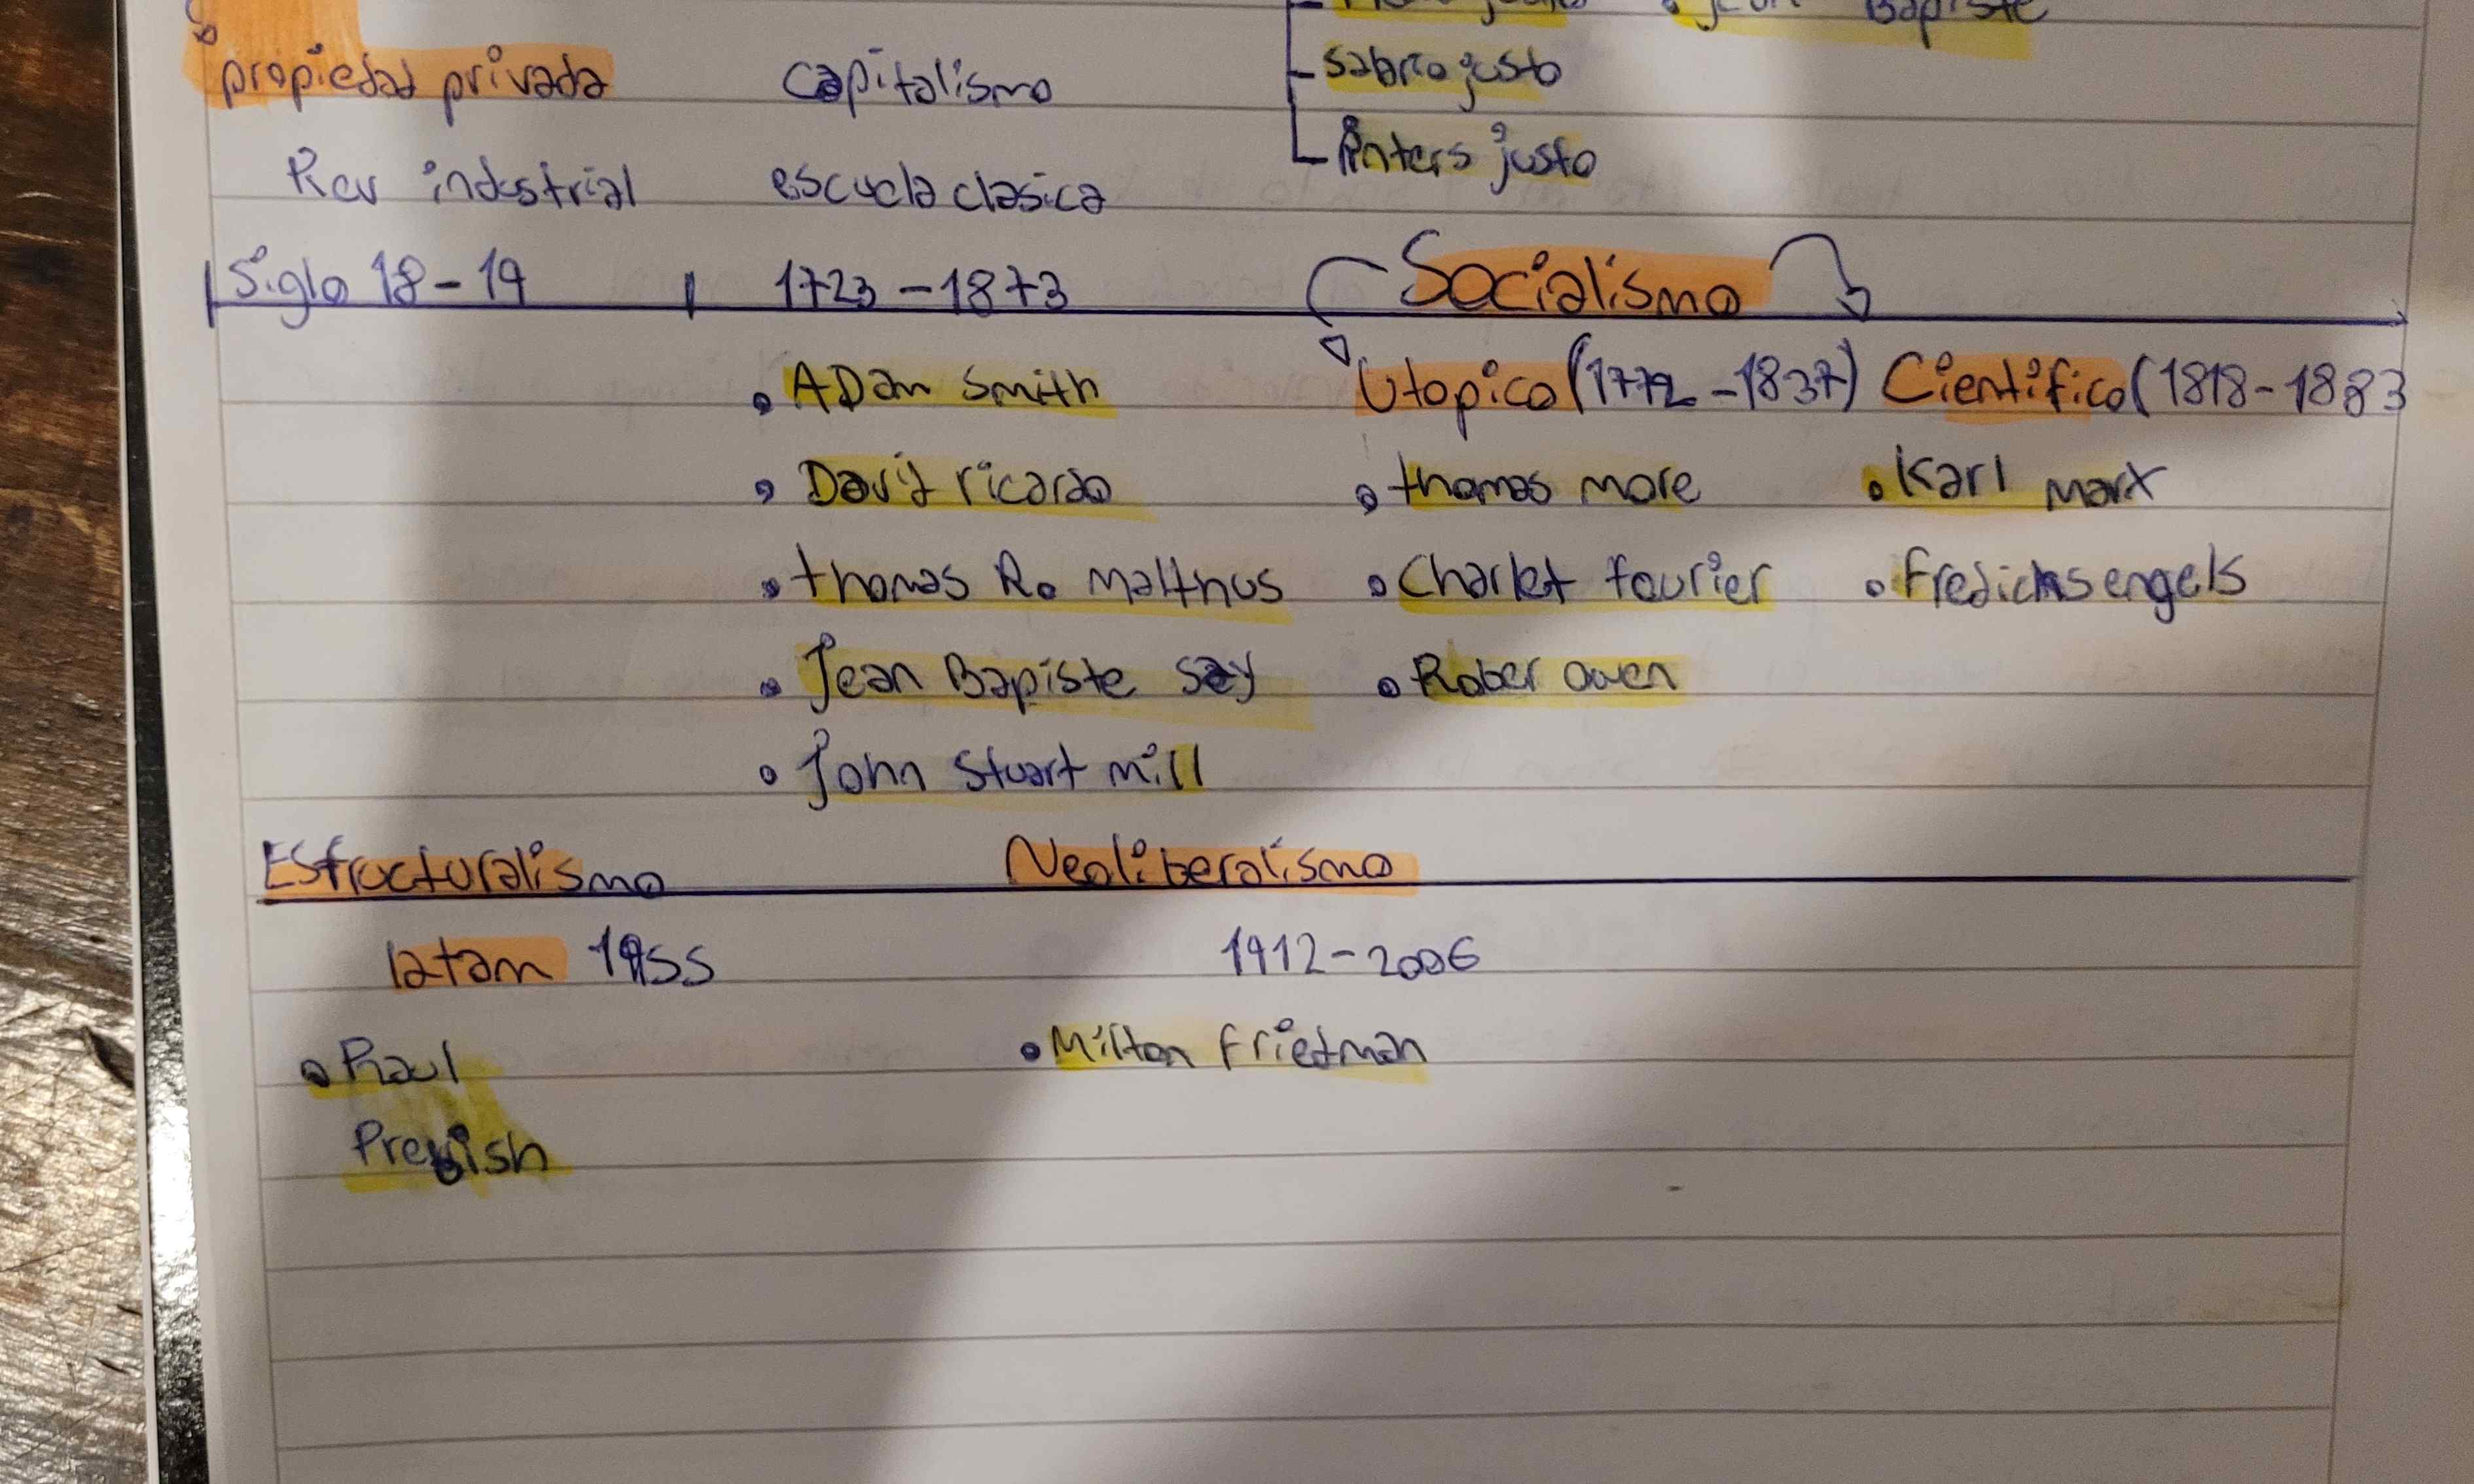 Bapiste
propiedad privada capitalismo salario justo
Rev industrial escuela clasica Inters justo
Siglo 18-19 1723-1873 Socialismo
Utopico (1772-1837) Cientifico (1818-1883
• ADam Smith
• David ricardo • thomas more • Karl marx
• thomas R. Malthus • Charlet fourier • Fredichs engels
• Jean Bapiste Say • Rober owen
• John Stuart mill
Estructuralismo Neoliberalismo
latam 1955 1912-2006
• Raul • Milton Friedman
Prebish